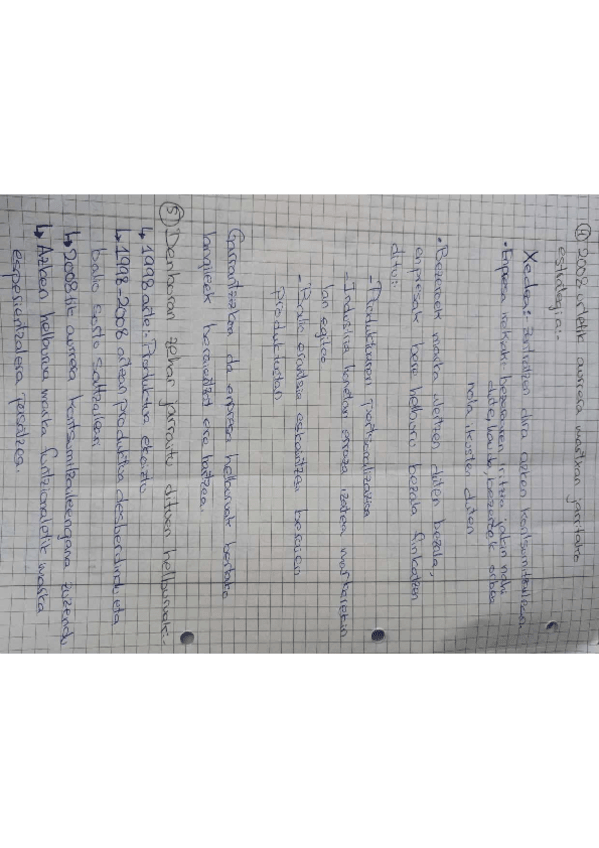 ④ 2008 urtetik aurrera martxan jarritako
estrategia:-
Xedea: Zentratzen dira azken kontsumitzailean
• Enpresa reikiak bezeroaren iritzia jakin nahi
dute, hau da, bezeroek enpresa
nola ikusten duten
• Bezeroek marka ulertzen duten bezala,
enpresak bere helburu bezala finkatzen
ditu:
- Produktuaren pertsonalizazioa
- Industria honetan erraza izatea markarekin
lan egitea
- Balio erantsia eskaintzea beraien
produktuetan
Garrantzitsua da enpresa helburuak bertako
langileek beraientzat ere hartzea.
⑤ Denboran zehar jarraitu dituen helburuak:-
↳ 1998 arte: Produktua ekoiztu
↳ 1998-2008 artean produktua desberdindu eta
balio eratsi saltzaileari
↳ 2008tik aurrera kontsumitzaileengana zuzendu
↳ Azken helburua marka funtzionaletik marka
esperientzialera pasatzea.